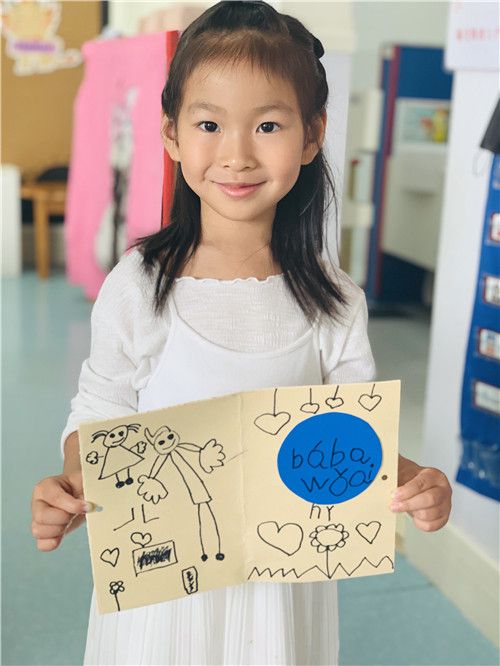 bába
wǒai
nǐ